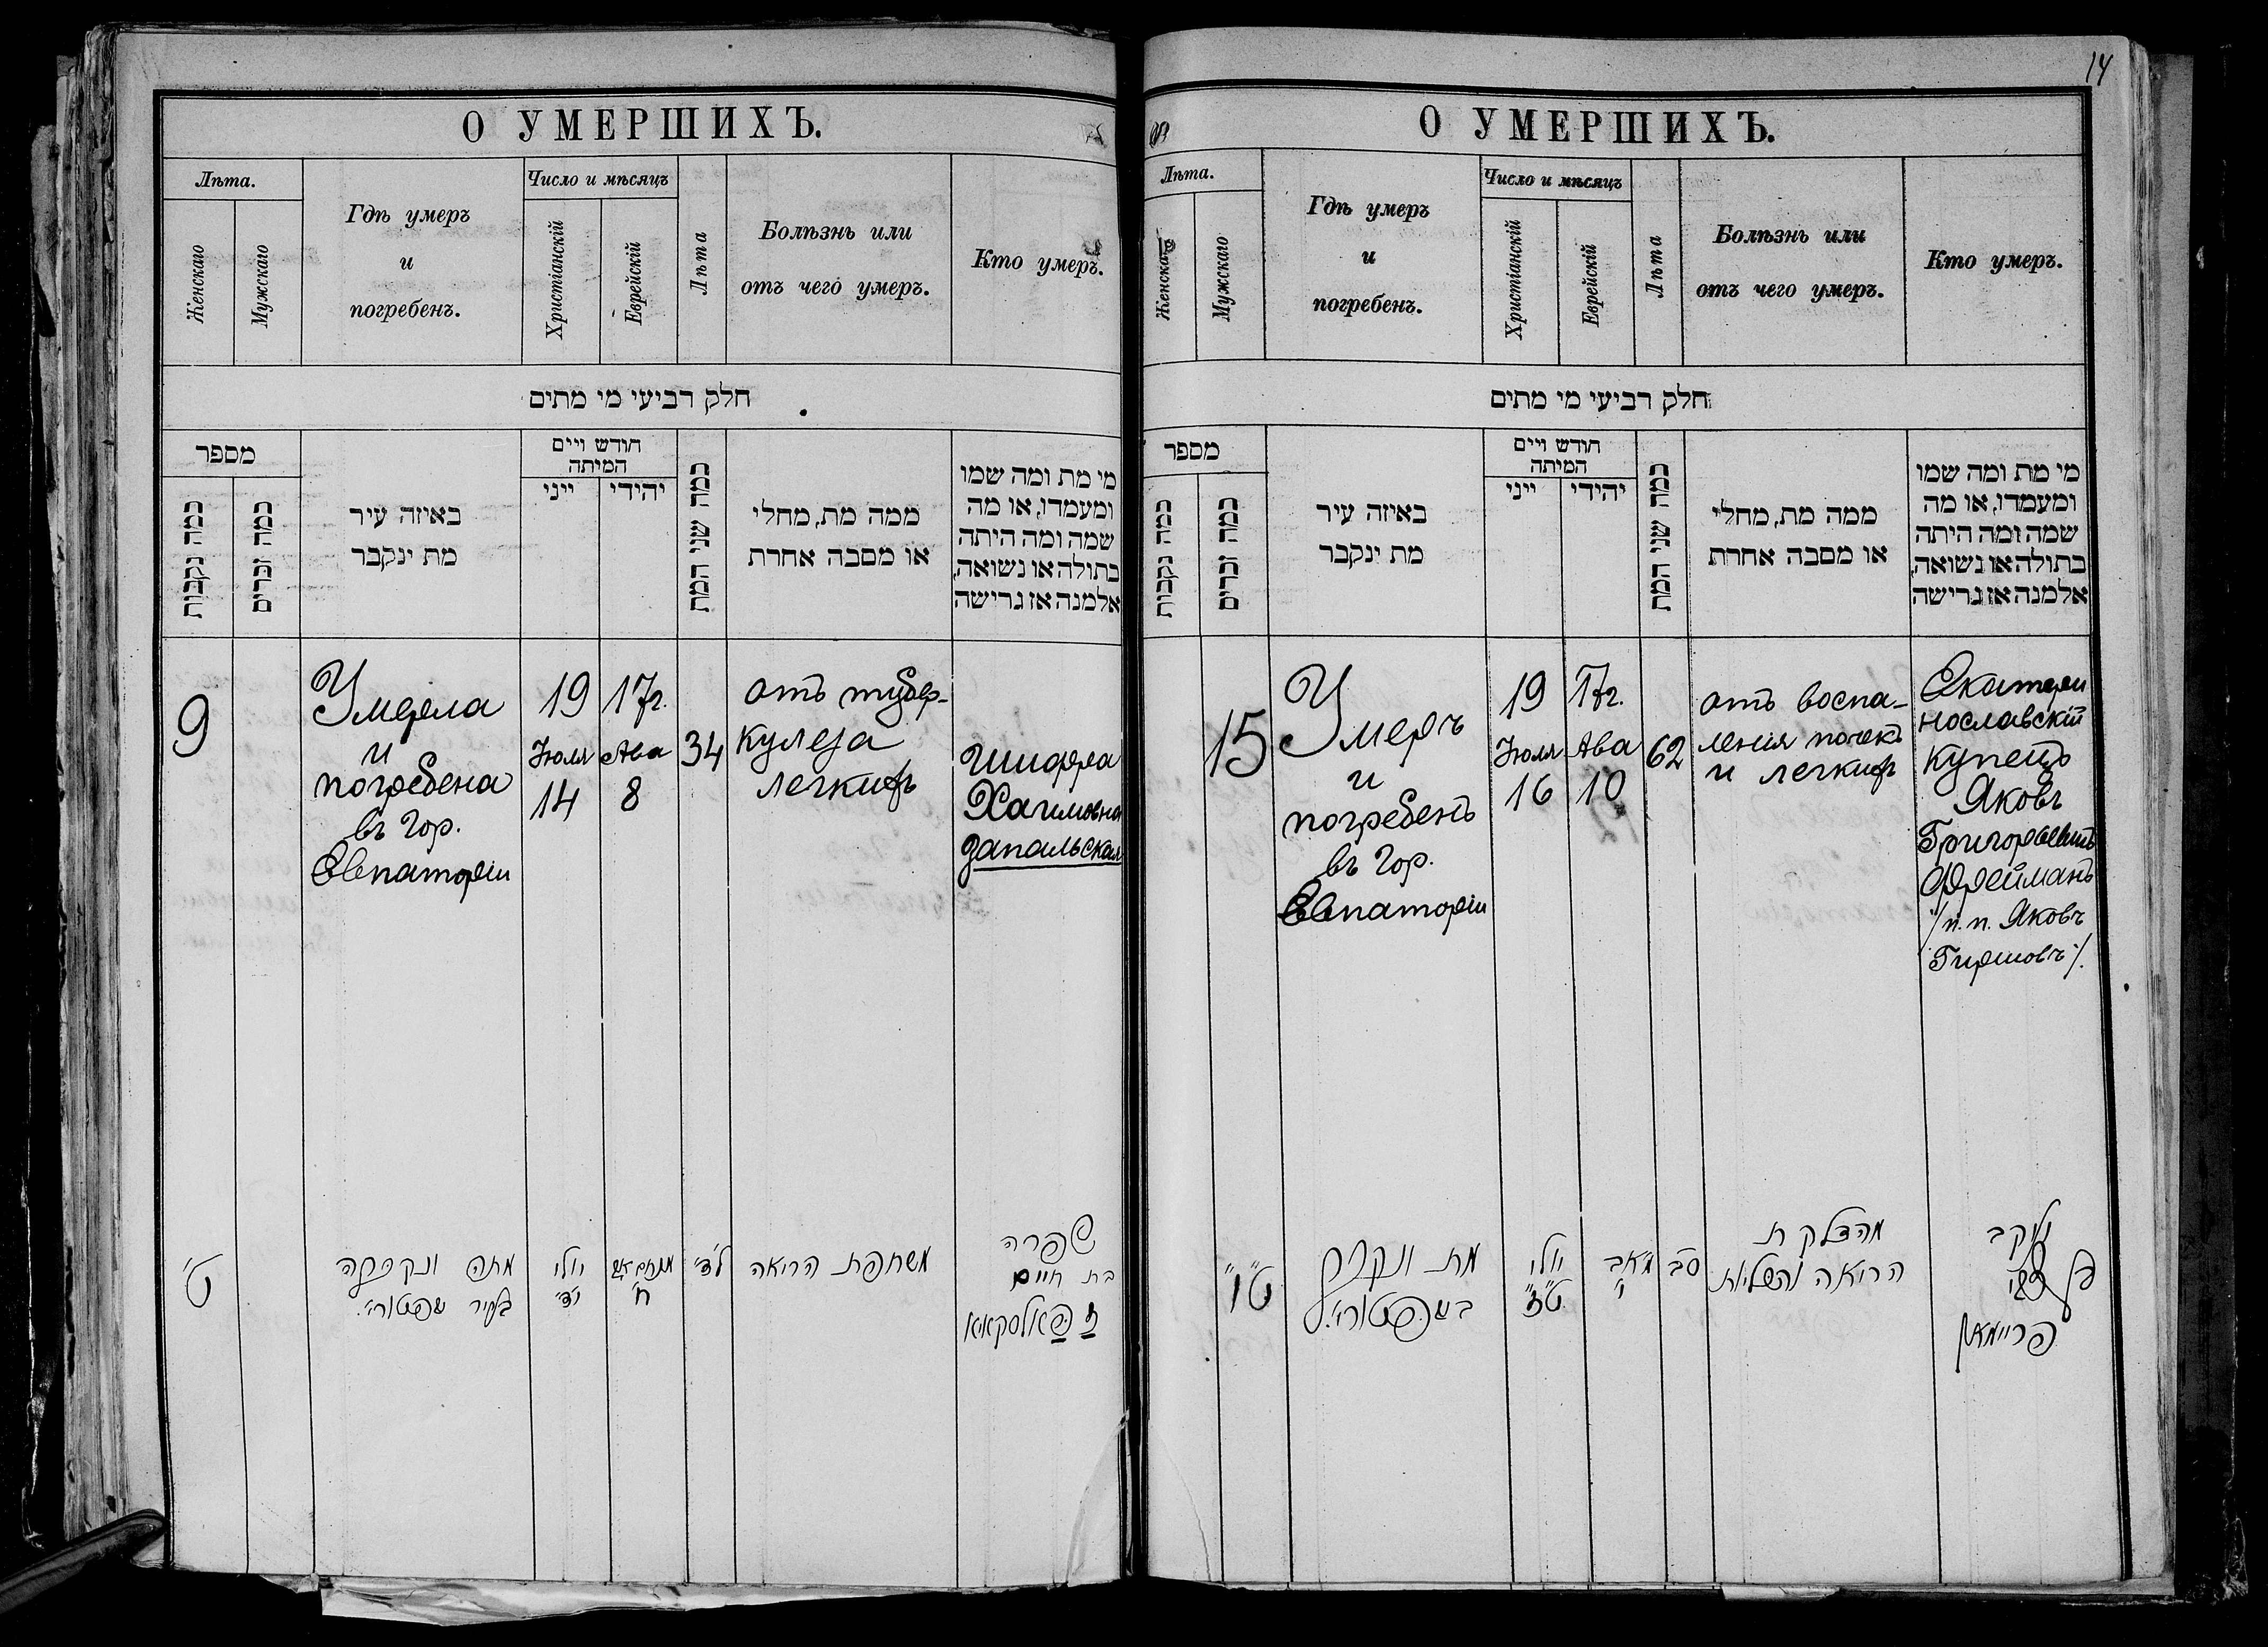 О УМЕРШИХЪ.
Лѣта.
Женскаго
Мужскаго
Гдѣ умеръ
и
погребенъ.
Число и мѣсяцъ
Христіанскій
Еврейскій
Лѣта
Болѣзнь или
отъ чего умеръ.
Кто умеръ.
חלק רביעי מי מתים
מספר
כמה נקבות
כמה זכרים
באיזה עיר
מת ינקבר
חודש ויים
המיתה
ייני
יהידי
כמה שני המת
ממה מת, מחלי
או מסבה אחרת
מי מת ומה שמו
ומעמדו, או מה
שמה ומה היתה
בתולה או נשואה,
אלמנה אז גרישה
9
Умерла
и
погребена
въ гор.
Евпаторіи
19
Іюля
14
17г.
Ава
8
34
отъ тубер-
кулеза
легкихъ
Шифра
Хаимовна
Запальская
ט'
מתה ונקברה
בעיר
יולי
י"ד
מנחם אב
ח'
ל"ד
משחפת הריאה
שפרה
בת חיים
זאפאלסקאיא
14
О УМЕРШИХЪ.
Лѣта.
Женскаго
Мужскаго
Гдѣ умеръ
и
погребенъ.
Число и мѣсяцъ
Христіанскій
Еврейскій
Лѣта
Болѣзнь или
отъ чего умеръ.
Кто умеръ.
חלק רביעי מי מתים
מספר
כמה נקבות
כמה זכרים
באיזה עיר
מת ינקבר
חודש ויים
המיתה
ייני
יהידי
כמה שני המת
ממה מת, מחלי
או מסבה אחרת
מי מת ומה שמו
ומעמדו, או מה
שמה ומה היתה
בתולה או נשואה,
אלמנה אז גרישה
15
Умеръ
и
погребенъ
въ гор.
Евпаторіи
19
Іюля
16
17г.
Ава
10
62
отъ воспа-
ленія почекъ
и легкихъ
Екатери
нославскій
купецъ
Яковъ
Григорьевичъ
Фрейманъ
/п.п. Яковъ
Гиршовъ/.
ט"ו
מת ונקבר
יולי
ט"ז
מ"אב
י'
סב
מהדלקת
הריאה והכליות
יעקב
בן צבי
פריימאן